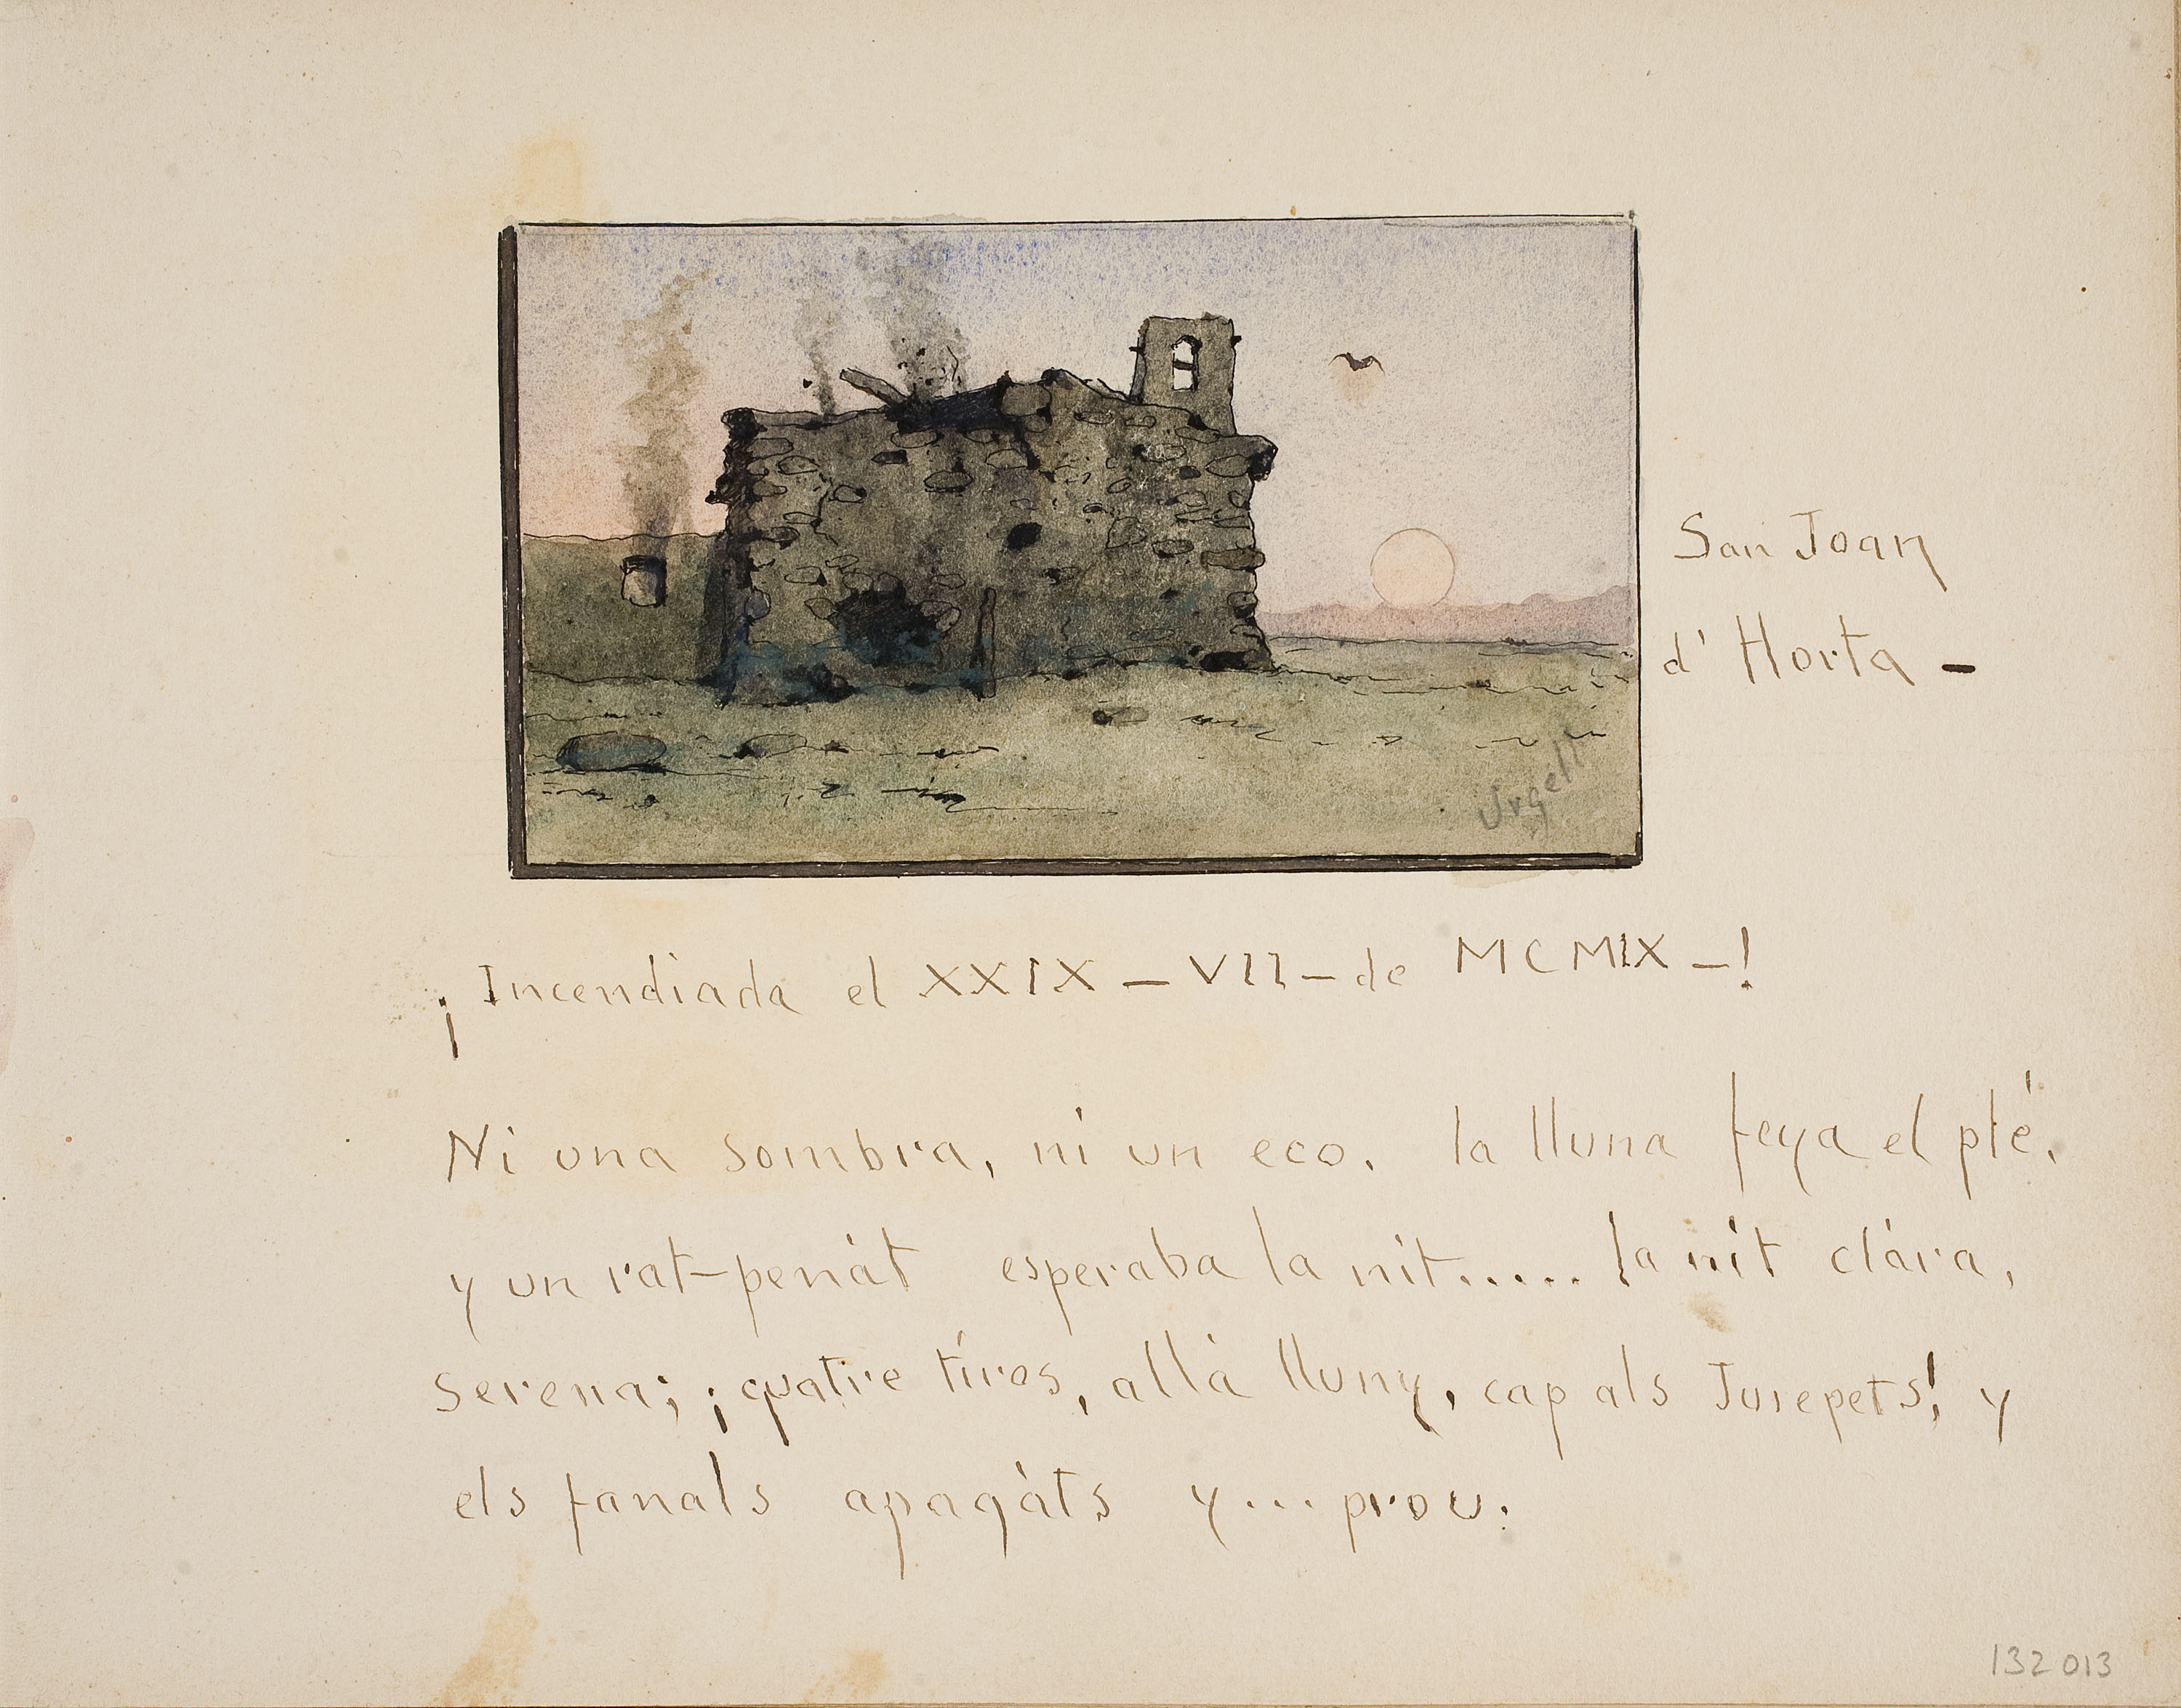 San Joan
d' Horta -
Urgell
¡Incendiada el XXIX - VII - de MCMIX - !
Ni una sombra, ni un eco. la lluna feya el plé,
y un rat-penát esperaba la nit..... la nit clára,
serena; ¡quatre tiros, allá lluny, cap als Josepets! y
els fanals apagáts y... prou.
132013